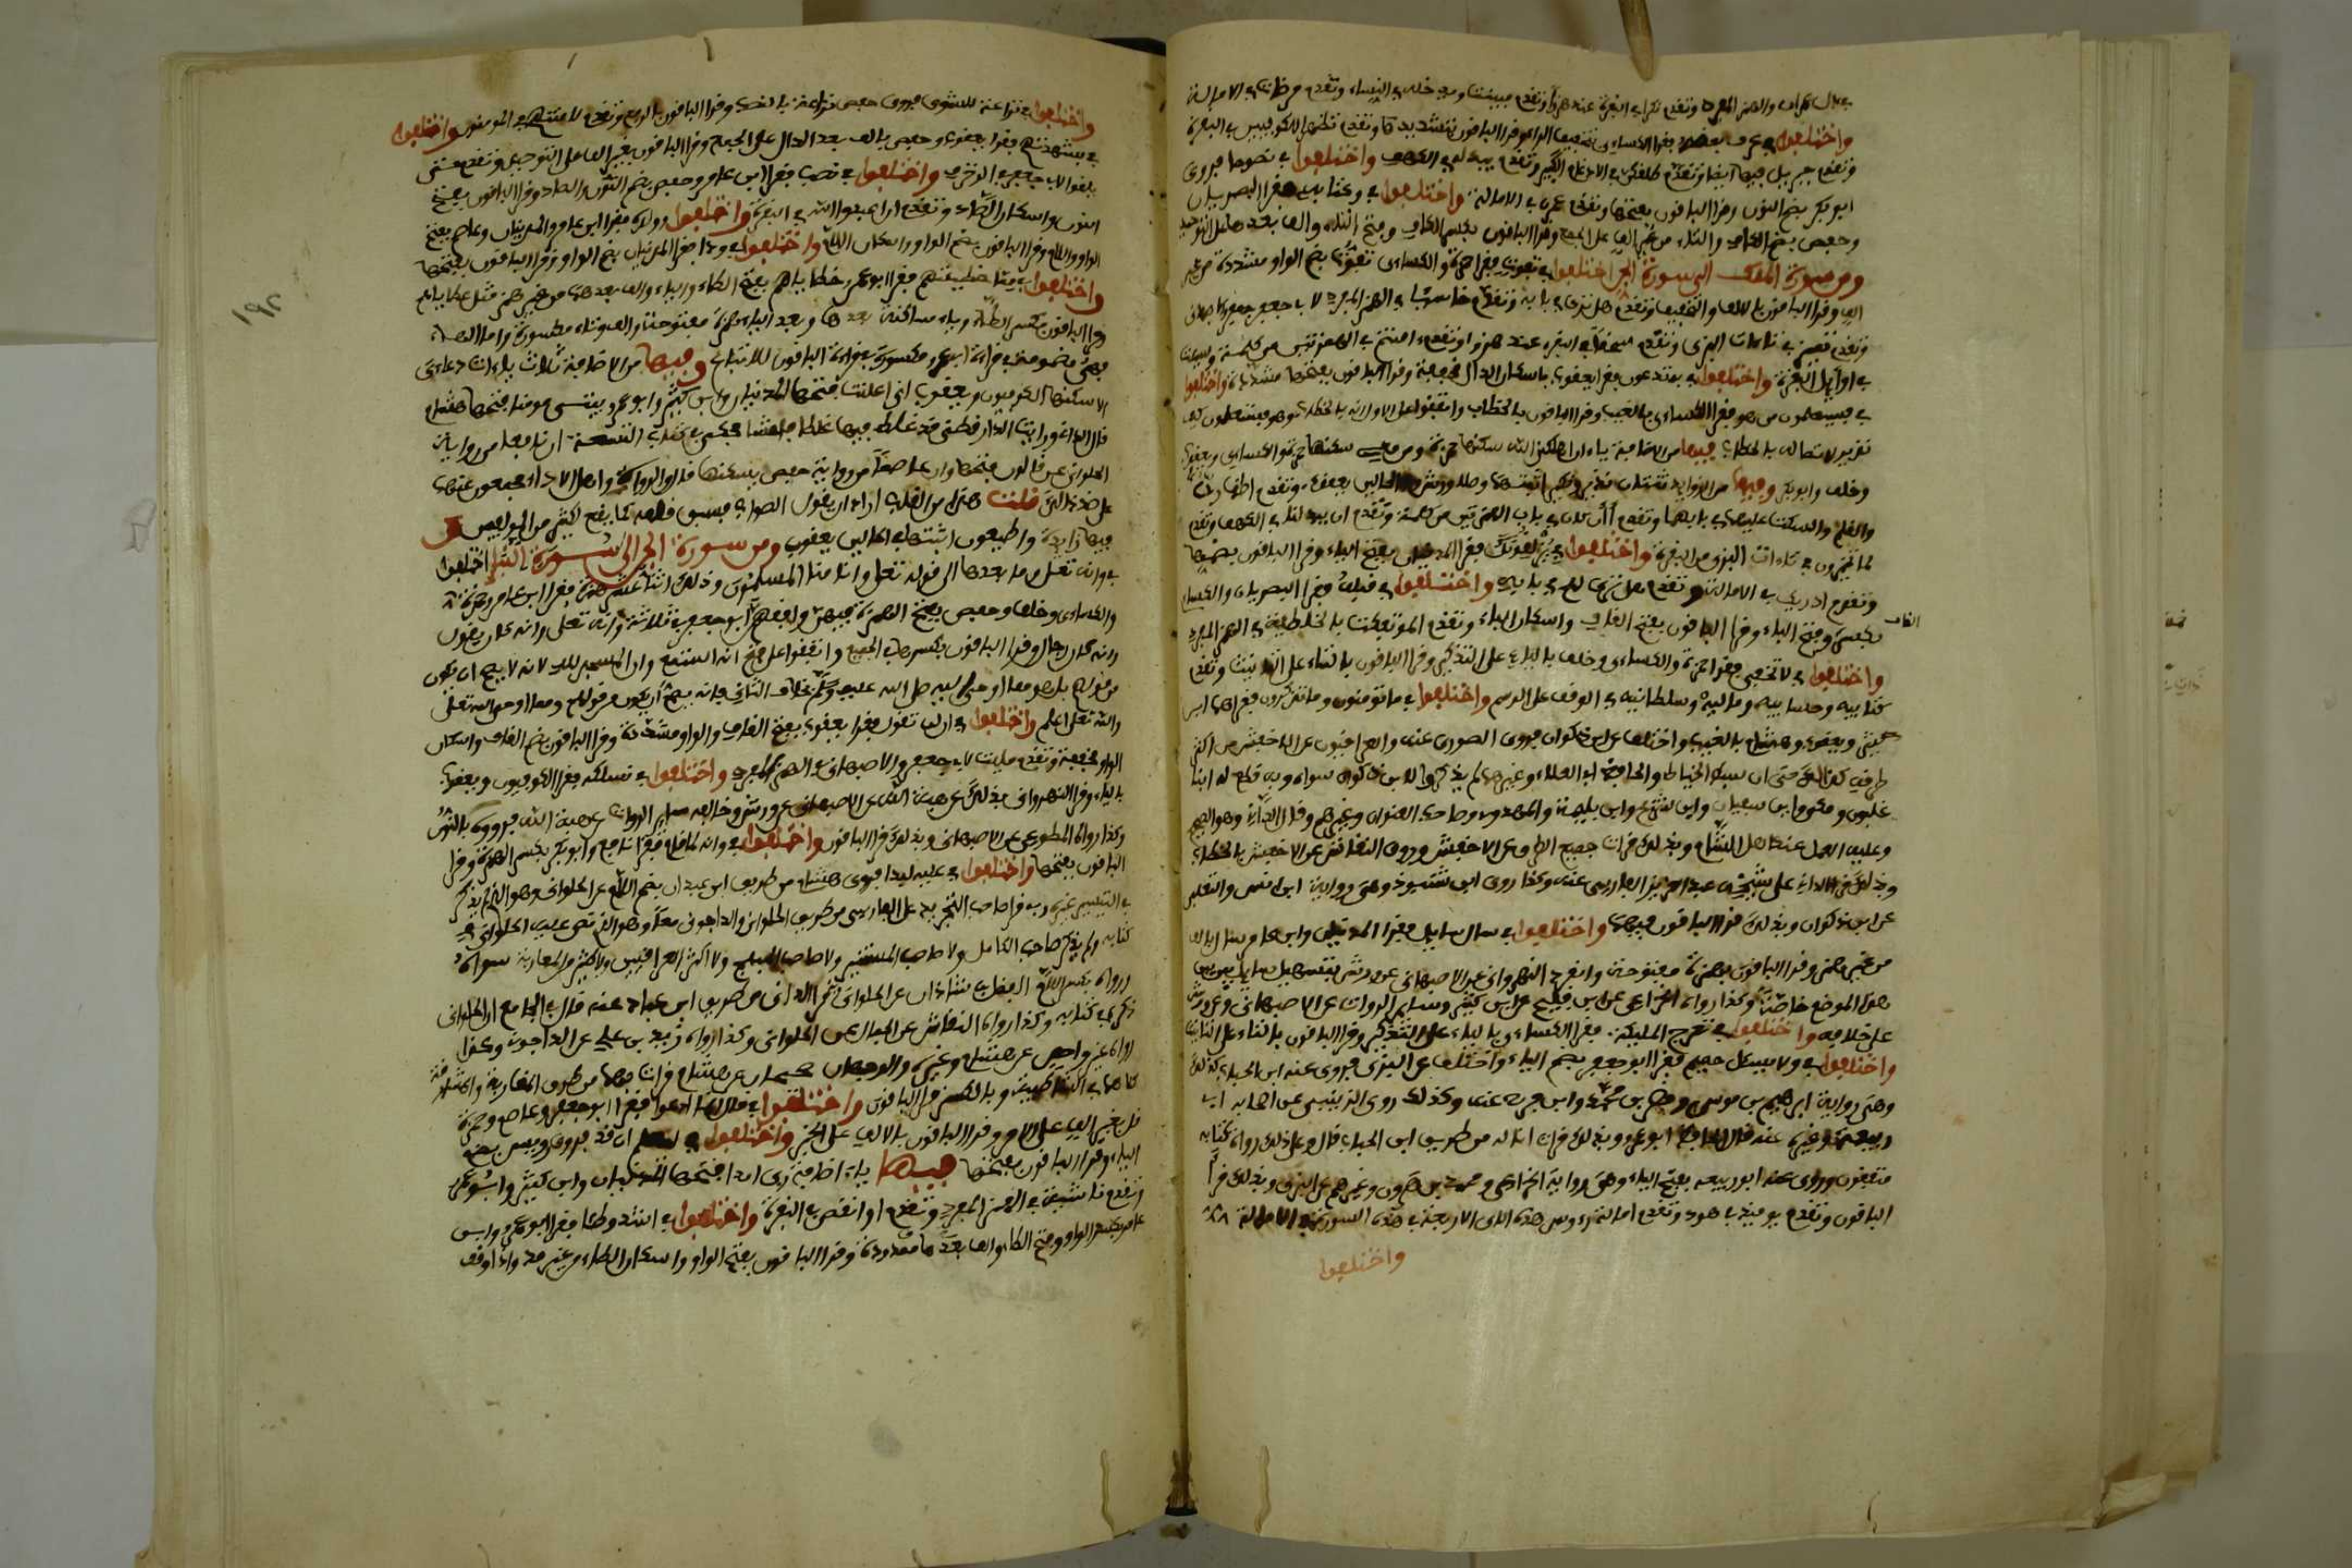 وتقدم نكرا في البقرة عند هزوا وتقدم مبينات ومدخله في النساء وتقدم مرضات في الامالة
واختلفوا في عرف بعضه فقرا الكساءي بتخفيف الراء وقرا الباقون بتشديدها وتقدم تظاهرا للكوفيين في البقرة
وتقدم جبريل فيها ايضا وتقدم طلقكن في الادغام الكبير وتقدم يبدله في الكهف واختلفوا في نصوحا فروى
ابو بكر بضم النون وقرا الباقون بفتحها وتقدم عمران في الامالة واختلفوا في وكتابه فقرا البصريان
وحفص بضم الكاف والتاء من غير الف على الجمع وقرا الباقون بكسر الكاف وفتح التاء والف بعدها على التوحيد
ومن سورة الملك الى سورة الجن اختلفوا في تفوت فقرا حمزة والكساءى تفوت بضم الواو مشددة من غير
الف وقرا الباقون بالالف والتخفيف وتقدم هل ترى في بابه وتقدم خاسئا في الهمز المفرد لابي جعفر والاصبهانى
وتقدم تميز في تاءات البزى وتقدم فسحقا في البقرة عند هزوا وتقدم ءامنتم في الهمزتين من كلمة وسيئت
في اوايل البقرة واختلفوا في به تدعون فقرا يعقوب باسكان الدال مخففة وقرا الباقون بفتحها مشددة واختلفوا
في فسيعلمون من هو فقرا الكساءى بالغيب وقرا الباقون بالخطاب واتفقوا على الاول انه بالخطاب وهو فستعلمون كيف
نذير لاتصاله بالخطاب فيها من الاضافة ياءان اهلكني الله سكنها حمزة ومن معي سكنها حمزة والكساءى ويعقوب
وخلف وابو بكر وفيها من الزوايد ثنتان نذير ونكير اثبتهما وصلا ورش وفي الحالين يعقوب وتقدم اظهار ن
والقلم والسكت عليها في بابهما وتقدم أأن كان في باب الهمزتين من كلمة وتقدم ان يبدلنا في الكهف وتقدم
لما تخيرون في تاءات البزى من البقرة واختلفوا في ليزلقونك فقرا المدنيان بفتح الياء وقرا الباقون بضمها
وتقدم ادريك في الامالة وتقدم فهل ترى لهم في بابه واختلفوا في قبله فقرا البصريان والكساءى
بكسر القاف وفتح الباء وقرا الباقون بفتح القاف واسكان الباء وتقدم الموتفكت بالخاطية في الهمز المفرد
واختلفوا في لا تخفى فقرا حمزة والكساءى وخلف بالياء على التذكير وقرا الباقون بالتاء على التانيث وتقدم
كتابيه وحسابيه وماليه وسلطانيه في الوقف على الرسم واختلفوا في ما تومنون وما تذكرون فقراهما ابن
كثير ويعقوب وهشام بالغيب واختلف عن ابن ذكوان فروى الصورى عنه والعراقيون عن الاخفش من اكثر
طرقه كذلك حتى ان سبط الخياط والحافظ ابا العلاء وغيرهما لم يذكروا لابن ذكوان سواه وبه قطع له ابنا
غلبون ومكي وابن سفيان وابن شريح وابن بليمة والمهدوى وصاحب العنوان وغيرهم وقال الداني وهو الصحيح
وعليه العمل عند اهل الشام وبذلك قرات جميع الطرق عن الاخفش وروى النقاش عن الاخفش بالخطاب
وبذلك قرا الداني على شيخه عبد العزيز الفارسى عنه وكذا روى ابن شنبوذ وهى رواية ابن انس والتغلبي
عن ابن ذكوان وبذلك قرا الباقون فيهما واختلفوا في سال سايل فقرا المدنيان وابن عامر سال بالالف
من غير همز وقرا الباقون بهمزة مفتوحة وانفرد النهروانى عن الاصبهانى عن ورش بتسهيل سايل بين بين
هذا الموضع خاصة وكذا رواه الخزاعى عن ابن فليح عن ابن كثير وساير الرواة عن الاصبهانى وعن ورش
على خلافه واختلفوا في تعرج المليكة فقرا الكساءى بالياء على التذكير وقرا الباقون بالتاء على التانيث
واختلفوا في ولا يسئل حميم فقرا ابو جعفر بضم الياء واختلف عن البزى فروى عنه ابن الحباب كذلك
وهى رواية ابرهيم بن موسى واللهبي ونصر بن محمد وابن فرح عنه وكذلك روى الزينبى عن اصحابه ابي
ربيعة وغيره عنه قال الحافظ ابو عمرو وبذلك قرات انا له من طريق ابن الحباب قال وعلى ذلك رواة كتابه
متفقون وروى عنه ابو ربيعه بفتح الياء وهى رواية الخزاعى ومحمد بن هرون وغيرهم عن البزى وبذلك قرا
الباقون وتقدم يوميذ في هود وتقدم امالة رءوس هذه الاى الاربعة في هذه السورة في الامالة
واختلفوا
واختلفوا في نزاعة للشوى فروى حفص نزاعة بالنصب وقرا الباقون بالرفع وتقدم لاماناتهم في المومنون واختلفوا
في بشهدتهم فقرا يعقوب وحفص بالف بعد الدال على الجمع وقرا الباقون بغير الف على التوحيد وتقدم حتى
يلقوا لابي جعفر في الزخرف واختلفوا في نصب فقرا ابن عامر وحفص بضم النون والصاد وقرا الباقون بفتح
النون واسكان الصاد وتقدم ان اعبدوا الله في البقرة واختلفوا في وولده فقرا ابن عامر والمدنيان وعاصم بفتح
الواو واللام وقرا الباقون بضم الواو واسكان اللام واختلفوا في ودا فقرا المدنيان بضم الواو وقرا الباقون بفتحها
واختلفوا في مما خطيئتهم فقرا ابو عمرو خطاياهم بفتح الطاء والياء والف بعدهما من غير همز مثل عطاياهم
وقرا الباقون بكسر الطاء وياء ساكنة بعدها وبعد الياء همزة مفتوحة والف وتاء مكسورة واما الهاء
فهى مضمومة في قراءة ابي عمرو مكسورة في قراءة الباقون للاتباع وفيها من الاضافة ثلاث ياءات دعاءى
الا سكنها الكوفيون ويعقوب انى اعلنت فتحها المدنيان وابن كثير وابو عمرو بيتى مومنا فتحها هشام
قال الدانى ورايت الدارقطنى قد غلط فيها غلطا فاحشا فحكى في كتاب السبعة ان نافعا من رواية
الحلوانى عن قالون فتحها وان عاصما من رواية حفص يسكنها قال والرواة واهل الاداء مجمعون عنهما
على ضد ذلك قلت هذا من القلب اراد ان يقول الصواب فسبق قلمه كما يقع لكثير من المولفين
فيها زايدة واطيعون اثبتها في الحالين يعقوب ومن سورة الجن الى سورة النبا اختلفوا
في وانه تعلى وما بعدها الى قوله تعلى وانا منا المسلمون وذلك اثنا عشر همزة فقرا ابن عامر وحمزة
والكساءى وخلف وحفص بفتح الهمزة فيهن وافقهم ابو جعفر في ثلاثة وانه تعلى وانه كان يقول
وانه كان رجال وقرا الباقون بكسرها في الجميع واتفقوا على فتح انه استمع وان المسجد لله لانه لا يصح ان يكون
من قولهم بل هو مما اوحى اليه صلى الله عليه وسلم بخلاف الثانى فانه يصح ان يكون من قولهم ومما اوحى الله تعلى
والله تعلى اعلم واختلفوا في ان لن تقول فقرا يعقوب بفتح القاف والواو مشددة وقرا الباقون بضم القاف واسكان
الواو مخففة وتقدم مليت لابي جعفر والاصبهانى في الهمز المفرد واختلفوا في نسلكه فقرا الكوفيون ويعقوب
بالياء وقرا النهروانى بذلك عن هبة الله عن الاصبهانى عن ورش وخالفه ساير الرواة عن هبة الله فرووه بالنون
وكذا رواه المطوعى عن الاصبهانى وبذلك قرا الباقون واختلفوا في وانه لما قام فقرا نافع وابو بكر بكسر الهمزة وقرا
الباقون بفتحها واختلفوا في عليه لبدا فروى هشام من طريق ابن عبدان بضم اللام عن الحلوانى وهو الذى لم يذكر
في التيسير غيره وبه قرا صاحب التجريد على الفارسى من طريق الحلوانى والداجونى معا وهو الذى نص عليه الحلوانى في
كتابه ولم يذكر صاحب الكامل ولا صاحب المستنير ولا صاحب المبهج ولا اكثر العراقيين ولا كثير من المغاربة سواه
ورواه بكسر اللام الفضل بن شاذان عن الحلوانى وبه قرا الدانى من طريق ابن عباد عنه قال في الجامع ان الحلوانى
ذكره في كتابه وكذا رواه النقاش عن الجمال عن الحلوانى وكذا رواه زيد بن على عن الداجونى وكذا
رواه غير واحد عن هشام وغيره والوجهان صحيحان عن هشام قرات بهما من طرق المغاربة والمشارقة
كلاهما في الشاطبية وبالكسر قرا الباقون واختلفوا في قال انما ادعوا فقرا ابو جعفر وعاصم وحمزة
قل بغير الف على الامر وقرا الباقون بالالف على الخبر واختلفوا في ليعلم ان قد فروى رويس بضم
الياء وقرا الباقون بفتحها فيها ياء اضافة ربى امدا فتحها المدنيان وابن كثير وابو عمرو
وتقدم ناشية في الهمز المفرد وتقدم او انقص في البقرة واختلفوا في اشد وطئا فقرا ابو عمرو وابن
عامر بكسر الواو وفتح الطاء والف بعدها ممدودة وقرا الباقون بفتح الواو واسكان الطاء من غير مد واذا وقف